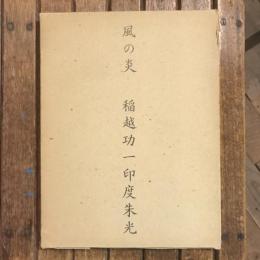 風の炎 稲越功一印度朱光